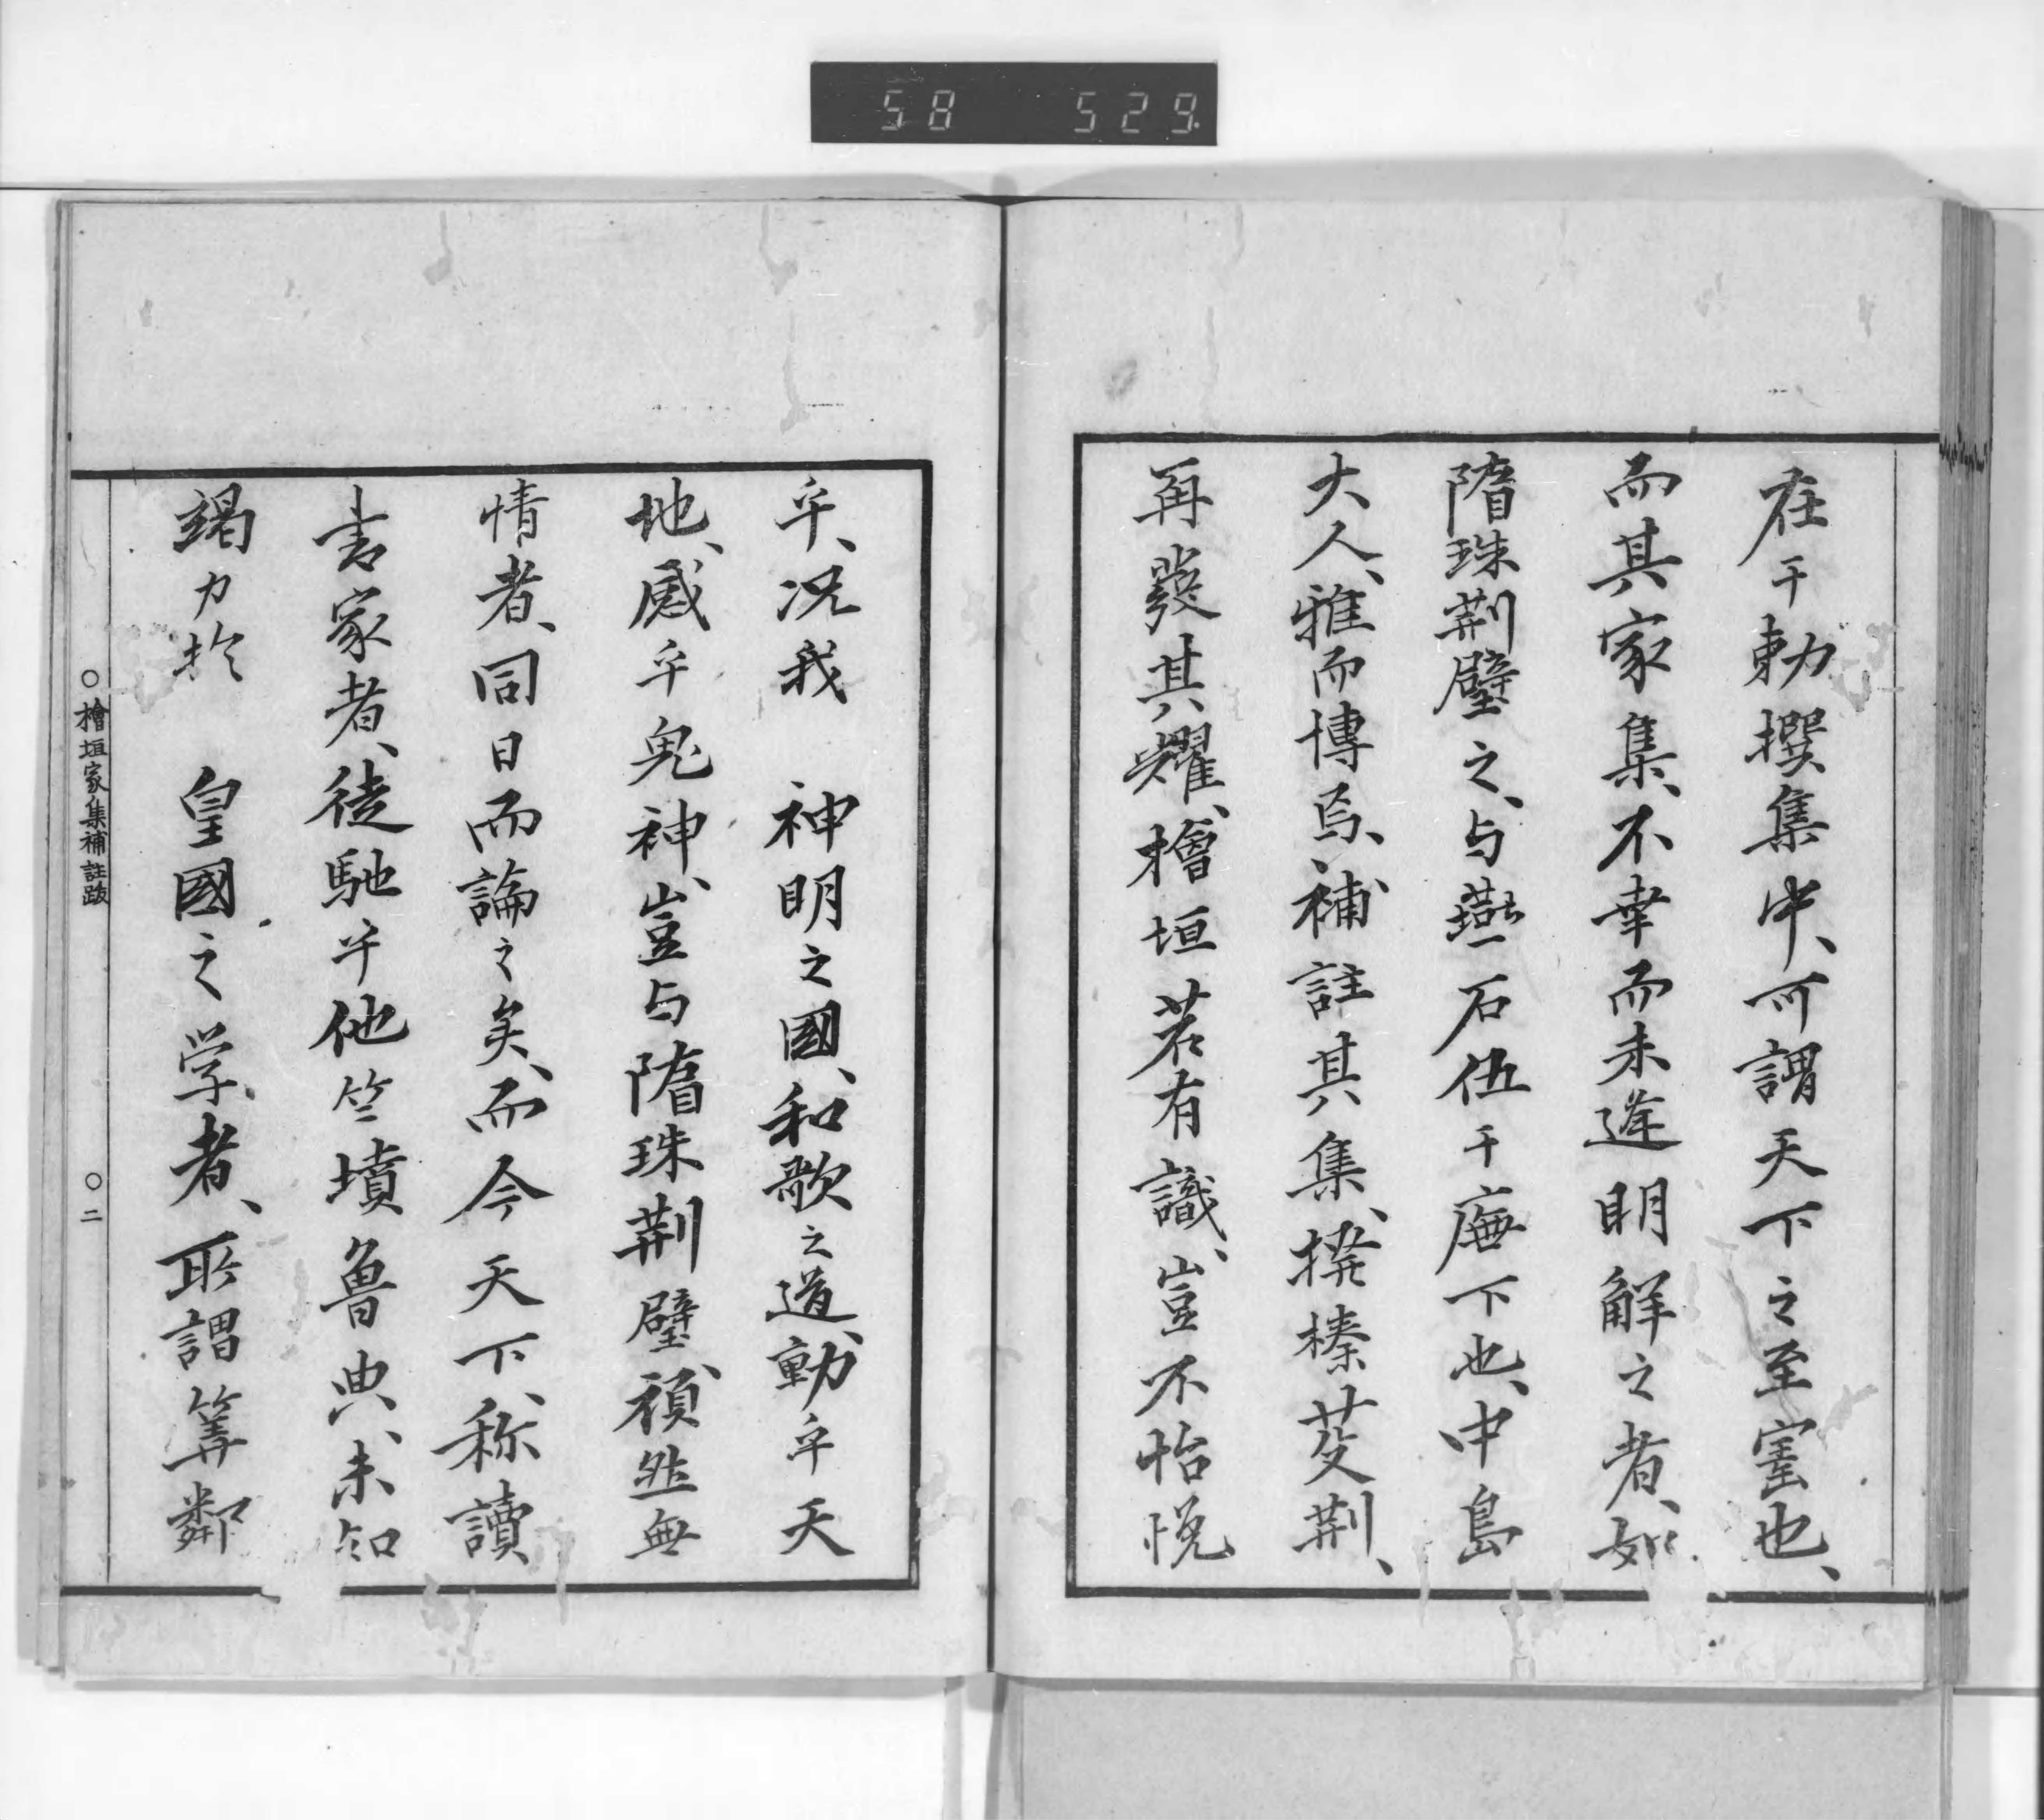 58 529
在于勅撰集中、可謂天下之至寚也、
而其家集、不幸而未逢明解之者、如
隋珠荆璧之、与燕石伍于廡下也、中島
大人、雅而博焉、補註其集、撥榛芟荆、
再發其耀、檜垣若有識、豈不怡悅
乎、况我 神明之國、和歌之道、動乎天
地、感乎鬼神、豈与隋珠荆璧、頑然無
情者、同日而論之矣、而今天下、称讀
書家者、徒馳乎他竺墳魯典、未知
竭力於 皇國之学者、所謂算鄰
○檜垣家集補註跋 ○二